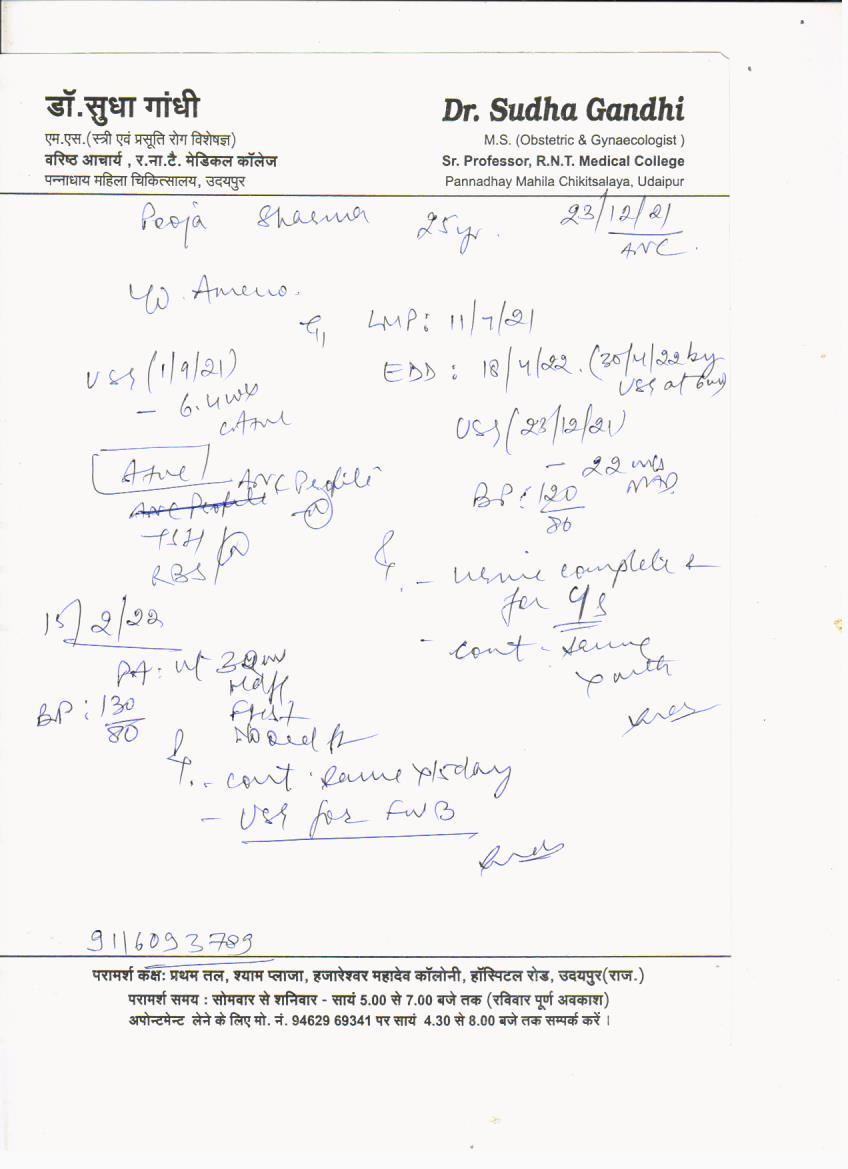 डॉ.सुधा गांधी
एम.एस.(स्त्री एवं प्रसूति रोग विशेषज्ञ)
वरिष्ठ आचार्य , र.ना.टै. मेडिकल कॉलेज
पन्नाधाय महिला चिकित्सालय, उदयपुर
Dr. Sudha Gandhi
M.S. (Obstetric & Gynaecologist )
Sr. Professor, R.N.T. Medical College
Pannadhay Mahila Chikitsalaya, Udaipur
Pooja Sharma 25yr. 23/12/21
ANC.
Ameno.
G1 LMP: 11/7/21
USG (1/9/21)
- 6.4wks
EDD: 18/4/22. (30/4/22 by
USG at 6wk)
USG (23/12/21)
- 22 wks
ANC Profile
BP: 120
80
TSH
RBS
- urine complete &
for
- cont. same
15/2/22
PA:
BP: 130
80
- cont. same x 15day
- USG for FWB
9116093789
परामर्श कक्षः प्रथम तल, श्याम प्लाजा, हजारेश्वर महादेव कॉलोनी, हॉस्पिटल रोड, उदयपुर(राज.)
परामर्श समय : सोमवार से शनिवार - सायं 5.00 से 7.00 बजे तक (रविवार पूर्ण अवकाश)
अपोन्टमेन्ट लेने के लिए मो. नं. 94629 69341 पर सायं 4.30 से 8.00 बजे तक सम्पर्क करें ।